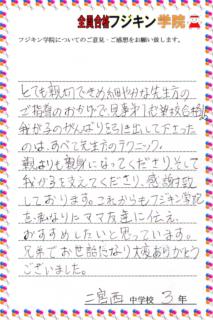 全員合格フジキン学院
フジキン学院についてのご意見・ご感想をお願い致します。
とても親切できめ細やかな先生方の
ご指導のおかげで見事第1志望校合格!
我が子のがんばりを引き出して下さった
のは、すべて先生方のテクニック。
親よりも親身になってくださり、そして
我が子を支えてくださり、感謝致
しております。これからもフジキン学院
を私なりにママ友達に伝え、
おすすめしたいと思っています。
兄弟でお世話になり大変ありがとう
ございました。
二宮西 中学校 3年